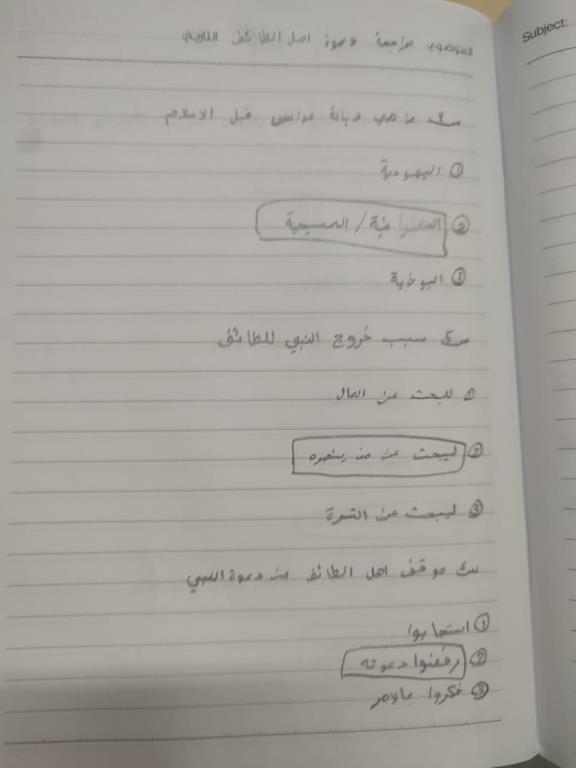 Subject:
الموضوع: مراجعة دعوة اهل الطائف
س ما هي ديانة عداس قبل الاسلام
① اليهودية
② النصرانية / المسيحية
③ البوذية
س سبب خروج النبي للطائف
① للبحث عن المال
② ليبحث عن من ينصره
③ ليبحث عن الثروة
س موقف اهل الطائف من دعوة النبي
① استجابوا
② رفضوا دعوته
③ فكروا بالامر